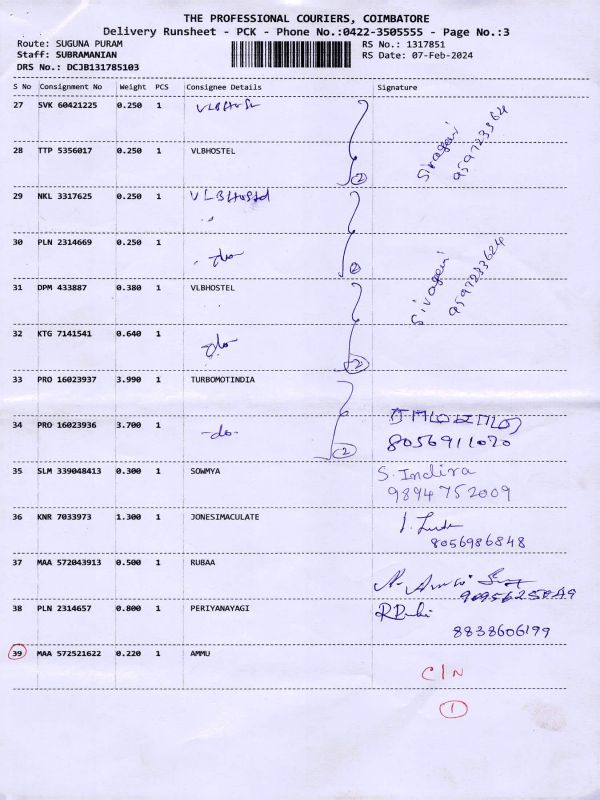 THE PROFESSIONAL COURIERS, COIMBATORE
Delivery Runsheet - PCK - Phone No.:0422-3505555 - Page No.:3
Route: SUGUNA PURAM
Staff: SUBRAMANIAN
DRS No.: DCJB131785103
RS No.: 1317851
RS Date: 07-Feb-2024
S No Consignment No Weight PCS Consignee Details Signature
27 SVK 60421225 0.250 1
28 TTP 5356017 0.250 1 VLBHOSTEL
2
29 NKL 3317625 0.250 1 VLBHostel
30 PLN 2314669 0.250 1 -do-
2
31 DPM 433887 0.380 1 VLBHOSTEL
32 KTG 7141541 0.640 1 -do-
2
33 PRO 16023937 3.990 1 TURBOMOTINDIA
34 PRO 16023936 3.700 1 -do-
2
8056911070
35 SLM 339048413 0.300 1 SOWMYA S. Indira
9894752009
36 KNR 7033973 1.300 1 JONESIMACULATE
8056986848
37 MAA 572043913 0.500 1 RUBAA
38 PLN 2314657 0.800 1 PERIYANAYAGI
8838606199
39 MAA 572521622 0.220 1 AMMU
C/N
1